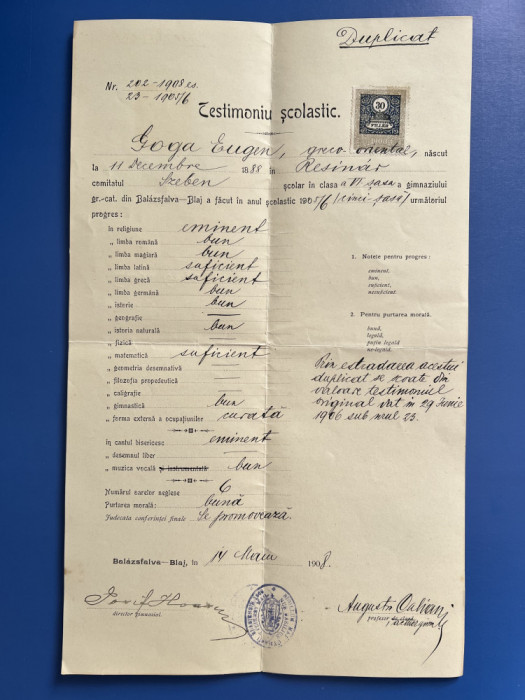 Duplicat
Nr. 202-1908 es.
23-1905/6
30
FILLÉR
Testimoniu școlastic.
Goga Eugen, greco-oriental, născut
la 11 Decembre 1888 în Resinár
comitatul Szeben școlar în clasa a VI șasa a gimnaziului
gr.-cat. din Balázsfalva—Blaj a făcut în anul școlastic 1905/6 (cinci-șasă) următoriul
progres:
în religiune eminent
„ limba română bun
„ limba magiară bun
„ limba latină suficient
„ limba grecă suficient
„ limba germână bun
„ istorie bun
„ geografie —
„ istoria naturală bun
„ fizică —
„ matematică suficient
„ geometria desemnativă
„ filozofia propedeutică —
„ caligrație —
„ gimnastică bun
„ forma externă a ocupațiunilor curată
în cantul bisericesc eminent
„ desemnul liber —
„ muzica vocală și instrumentală bun
Numărul oarelor neglese 6
Purtarea morală: bună
Judecata conferinței finale Se promovează.
1. Notele pentru progres:
eminent,
bun,
suficient,
nesuficient.
2. Pentru purtarea morală.
bună,
legală,
puțin legală
ne-legală.
Prin estradarea acestui
duplicat se scoate din
valoare testimoniul
original dat in 29 Iunie
1906 sub nrul 23.
Balázsfalva—Blaj, în 14 Maiu 1908.
director gimnazial
profesor